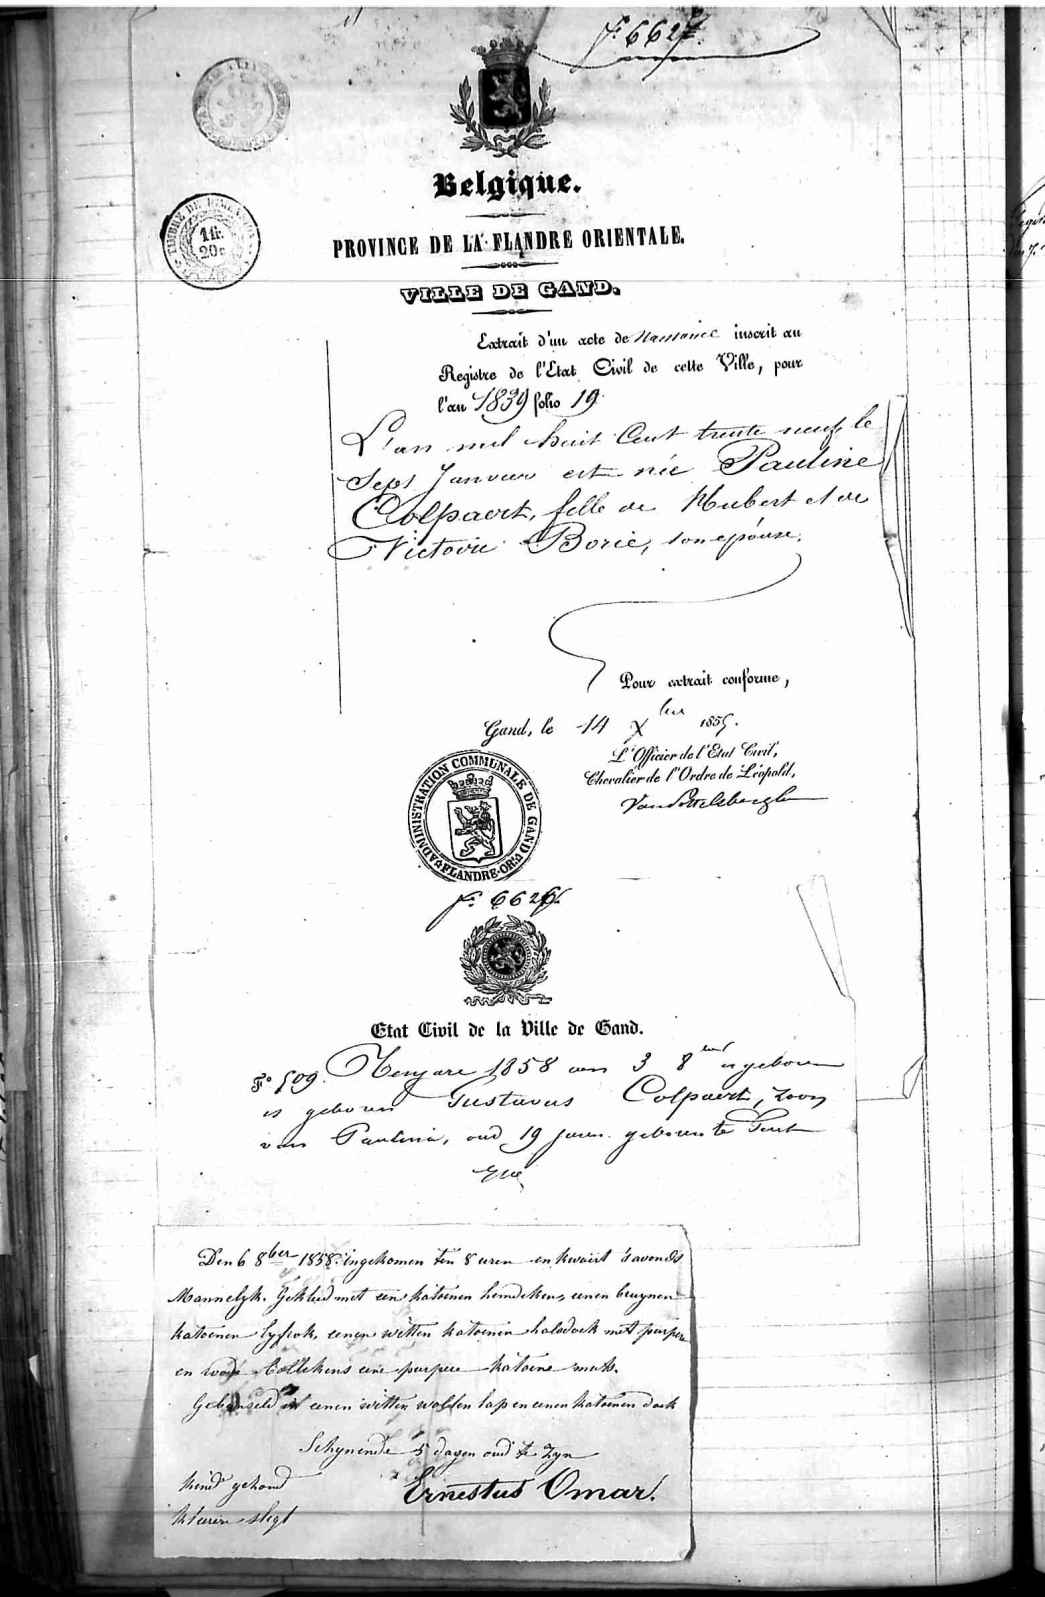 fo. 6627.
Belgique.
PROVINCE DE LA FLANDRE ORIENTALE.
TIMBRE DE
1 fr
20 c
VILLE DE GAND.
Extrait d'un acte de Naissance inscrit au
Registre de l'Etat Civil de cette Ville, pour
l'an 1839 folio 19.
L'an mil huit Cent trente neuf le
Sept Janvier est née Pauline
Colpaert, fille de Hubert et de
Victoire Borié, son epouse.
Pour extrait conforme,
Gand, le 14 Xber 1859.
L'Officier de l'Etat Civil,
Chevalier de l'Ordre de Léopold,
ADMINISTRATION COMMUNALE DE GAND
FLANDRE-ORle
fo. 6627.
Etat Civil de la Ville de Gand.
Fo 509. 1858 den 3 8ber
is geboren Gustavus Colpaert, zoon
van Paulina, oud 19 jaren geboren te Gent
Den 6 8ber 1858. ingekomen ten 8 uren en kwaert 's avonds
Mannelyk. Gekleed met een katoenen hemdeken, eenen bruynen
katoenen lyfrok, eenen witten katoenen halsdoek met purper
en roode bollekens eene purpere katoene muts.
Gebonseld in eenen witten wollen lap en eenen katoenen doek
Schynende 5 dagen oud te zyn
kind gezond
kleeren slegt
Ernestus Omar.